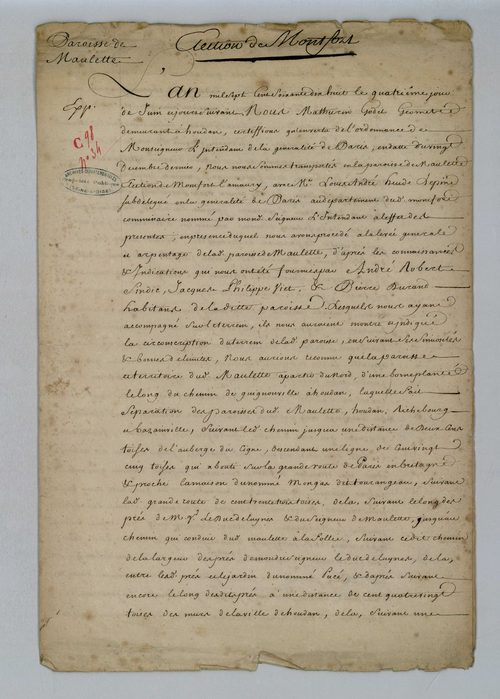 Paroisse de
Maulette
Election de Montfort
Exp.
C 98
N° 34
ARCHIVES DEPARTEMENTALES
L'an mil sept cent soixante dix huit le quatrième jour
de Juin et jours suivant Nous Mathurin Godet Geometre
demeurant a houdan, certiffions qu'en vertu de l'ordonnance de
Monseigneur L'intendant de la generalité de Paris, en datte du vingt
Decembre dernier, nous nous sommes transportés en la paroisse de Maulette
Election de Montfort l'amaury, avec Mr. Louis André
subdelegué en la generalité de Paris au departement dud. montfort
commissaire nommé par mond. Seigneur L'Intendant a l'effet des
presentes; en presence duquel nous avons procedé a la levée generale
& arpentage de lad. paroisse de Maulette, d'après les connaissances
& Indications qui nous ont eté fournies par André Robert
Sindic, Jacques Philippe Viet, & Pierre Durand
habitans de la ditte paroisse. Lesquels nous ayant
accompagné sur le terrein, ils nous auroient montré & indiqué
la circonscription du terrein de lad. paroisse, en suivant ses sinuosités
& bornes de limites, Nous aurions reconnu que la paroisse
et territoire dud. Maulette a partir du Nord, d'une borne plantée
le long du chemin de guignonville à houdan, laquelle fait
Separation des paroisses dud. Maulette, houdan, Richebourg
& bazainville, suivant led. chemin jusqu'a une distance de Deux Cens
toises de l'auberge du Cigne, descendant une ligne, de Cent vingt
cinq toises qui abouti sur la grande route de Paris en bretagne
& proche la maison du nommé Mongas dit tourangeau, suivant
lad. grande route de cent trente trois toises, de la, suivant le long des
prés de M.gr. Le Duc de luynes & du Seigneur de Maulette, jusqu'au
chemin qui conduit dud. maulette a la follie, suivant ce dit chemin
de la largeur des prés de mond. seigneur le duc de luynes, de la,
entre lesd. prés et le jardin du nommé Pucé, & d'après suivant
encore le long des dits prés a une distance de cent quatre vingt
toises des murs de la ville de houdan, de la, suivant une